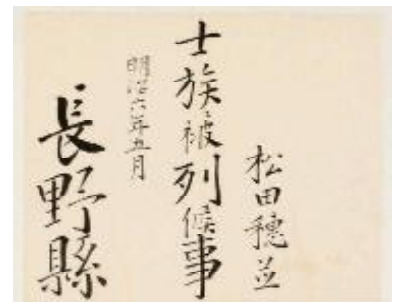 松田穂並
士族被列候事
明治六年五月
長野縣